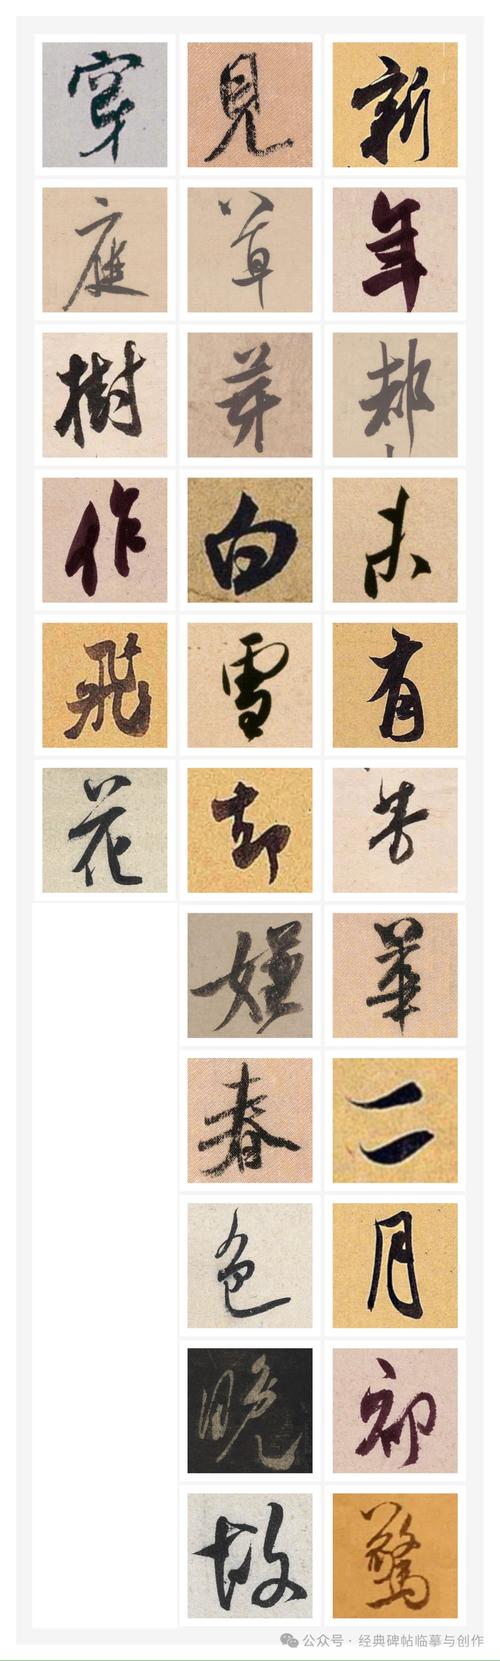 新年都未有芳華二月初驚
見草芽白雪却嫌春色晚故
穿庭樹作飛花
公众号 · 经典碑帖临摹与创作